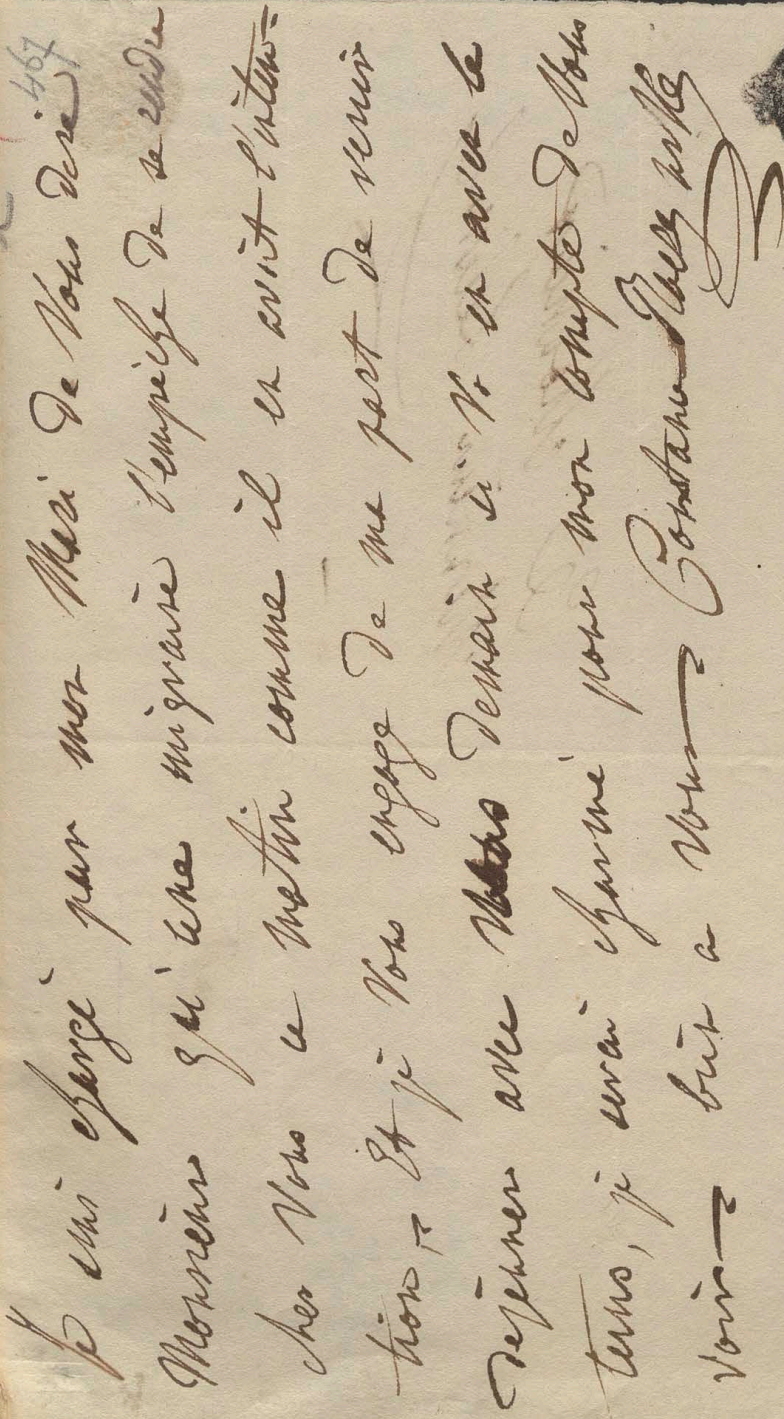 467
Je suis chargé par mon Mari de Vous dire
Monsieur qu'une migraine l'empêche de se rendre
chez Vous ce matin comme il en avoit l'inten=
tion, Et je Vous engage de ma part de venir
dejeuner avec Nous demain si Vs en avez le
tems, je serai charmé pour mon compte de Vous
voir — bien a vous — Constance